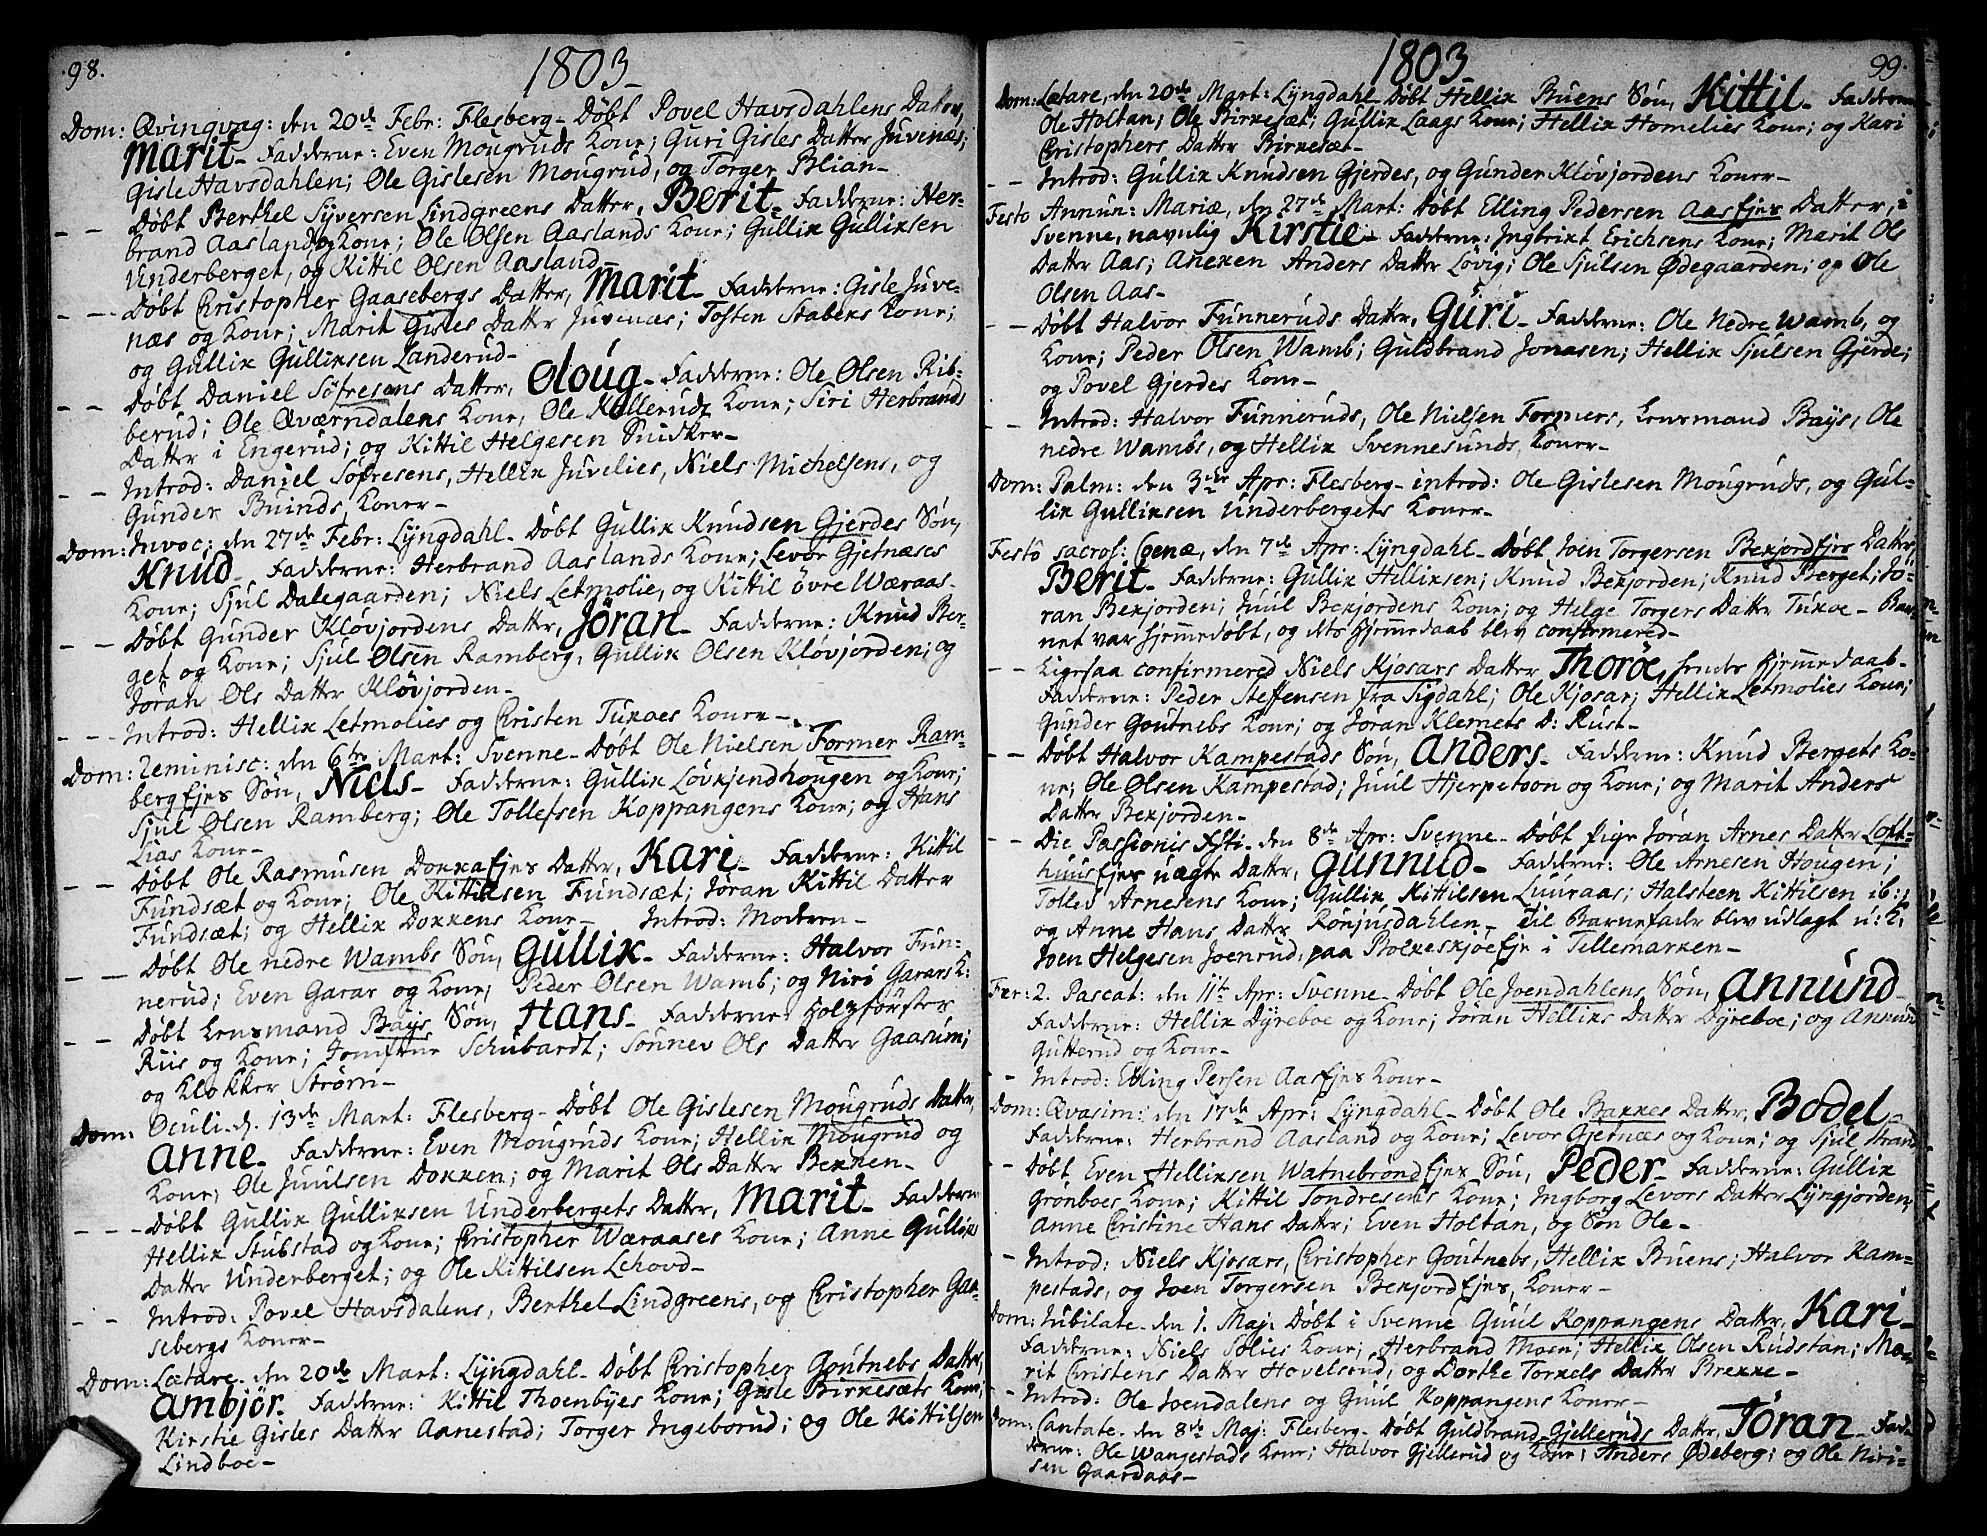 98.
1803
Dom: Qvinqvag: den 20de Febr: Flesberg - Døbt Povel Havsdahlens Datter,
Marit - Fadderne: Even Mougruds Kone; Guri Gisles Datter Juvenæs;
Gisle Havsdahlen; Ole Gislesen Mougrud, og Torger Blian -
- - Døbt Berthel Syversen Lindgreens Datter, Berit - Fadderne: Her-
brand Aasland og Kone; Ole Olsen Aaslands Kone; Gullik Gulliksen
Underberget, og Kittil Olsen Aasland -
- - Døbt Christopher Gaasebergs Datter, Marit - Fadderne: Gisle Juve-
næs og Kone; Marit Gisles Datter Juvenæs; Tosten Stabeks Kone;
og Gullik Gulliksen Landerud -
- - Døbt Daniel Sofresens Datter, Oloug - Fadderne: Ole Olsen Rib-
berud; Ole Qværndalens Kone; Ole Kolleruds Kone; Siri Herbrands
Datter i Engerud; og Kittil Helgesen Snidker -
- - Introd: Daniel Sofresens, Hellik Juvelies, Niels Michelsens, og
Gunder Buinds, Koner -
Dom: Invoc: den 27de Febr: Lyngdahl - Døbt Gullik Knudsen Gjerdes Søn,
Knud - Fadderne: Herbrand Aaslands Kone; Levor Gjetnæses
Kone; Sjul Dalegaarden; Niels Letmolie, og Kittil øvre Wæraas -
- - Døbt Gunder Kløvjordens Datter, Jøran - Fadderne: Knud Ber-
get og Kone; Sjul Olsen Ramberg, Gullik Olsen Kløvjorden; og
Jøran Ols Datter Kløvjorden -
- - Introd: Hellik Letmolies og Christen Tukoes Koner -
Dom: Reminisc: den 6te Mart: Svenne - Døbt Ole Nielsen Former Ram-
berg Ejes Søn, Niels - Fadderne: Gullik Løvkjendhougen og Kone;
Sjul Olsen Ramberg; Ole Tollefsen Koppangens Kone; og Hans
Lias Kone -
- - Døbt Ole Rasmusen Dokka Ejes Datter, Kari - Fadderne: Kittil
Fundsæt og Kone; Ole Kittilsen Fundsæt; Jøran Kittil Datter
Fundsæt; og Hellik Dokkens Kone - Introd: Moderen -
- - Døbt Ole nedre Wambs Søn, Gullik - Fadderne: Halvor Fun-
nerud; Even Garar og Kone; Peder Olsen Wamb; og Niri Garars K:
- - Døbt Lensmand Bays Søn, Hans - Fadderne: Holzførster
Riis og Kone; Jomfrue Schubardt; Sønnev Ols Datter Gaasum;
og Klokker Strøm -
Dom: Oculi - d. 13de Mart: Flesberg - Døbt Ole Gislesen Mougruds Datter,
Anne - Fadderne: Even Mougruds Kone; Hellik Mougrud og
Kone; Ole Juulsen Dokken; og Marit Ols Datter Bekken -
- - Døbt Gullik Gulliksen Underbergets Datter, Marit - Fadderne
Hellik Stubstad og Kone; Christopher Wæraases Kone; Anne Gulliks
Datter Underberget; og Ole Kittilsen Lehovd -
- - Introd: Povel Havsdalens, Berthel Lindgreens, og Christopher Gaa-
sebergs Koner -
Dom: Lætare - den 20de Mart: Lyngdahl - Døbt Christopher Goutnebs Datter,
Ambjør - Fadderne: Kittil Thoenbyes Kone; Gisle Birkesæts Kone;
Kirstie Gisles Datter Aanestad; Torger Ingeborud; og Ole Kittilsen
Lindboe -
1803
99.
Dom: Lætare, den 20de Mart: Lyngdahl - Døbt Hellik Buens Søn, Kittil - Fadderne
Ole Holtan; Ole Birkesæt; Gullik Laags Kone; Hellik Homelies Kone; og Kari
Christophers Datter Birkesæt -
- - Introd: Gullik Knudsen Gjerdes, og Gunder Kløvjordens Koner -
Festo Annun: Mariæ, den 27de Mart: Døbt Elling Pedersen Aas Ejes Datter, i
Svenne, navnlig Kirstie - Fadderne: Ingbrikt Erichsens Kone; Marit Ols
Datter Aas; Aneken Anders Datter Løvig; Ole Sjulsen Ødegaarden; og Ole
Olsen Aas -
- - Døbt Halvor Funneruds Datter, Guri - Fadderne: Ole Nedre Wamb, og
Kone; Peder Olsen Wamb; Guldbrand Jonasen; Hellik Sjulsen Gjerde;
og Povel Gjerdes Kone -
- - Introd: Halvor Funneruds, Ole Nielsen Formers, Lensmand Bays, Ole
nedre Wambs, og Hellik Svennesunds, Koner -
Dom: Palm: den 3die Apr: Flesberg - introd: Ole Gislesen Mougruds, og Gul-
lik Gulliksen Underbergets Koner -
Festo sacros: Coenæ, den 7de Apr: Lyngdahl - Døbt Joen Torgersen Bekjord Ejes Datter,
Berit - Fadderne: Gullik Helliksen; Knud Bekjorden; Knud Berget; Jø-
ran Bekjorden; Juul Bekjordens Kone; og Helge Torgers Datter Tukoe - Bar-
net var hjemmedøbt, og dets Hjemmedaab blev confirmered -
- - Ligesaa confirmered Niels Kjosars Datter Thoröe, hendes Hjemmedaab -
Fadderne: Peder Steffensen fra Sigdahl; Ole Kjosar; Hellik Letmolies Kone;
Gunder Goutnebs Kone; og Jøran Klemets D: Rust -
- - Døbt Halvor Kampestads Søn, Anders - Fadderne: Knud Bergets Ko-
ne; Ole Olsen Kampestad; Juul Hjerpetoon og Kone; og Marit Anders
Datter Bekjorden -
- - Die Passionis Xsti - den 8de Apr: Svenne - Døbt Pige Jøran Arnes Datter Loft-
huus Ejes uægte Datter, Gunnud - Fadderne: Ole Arnesen Hougen;
Tollev Arnesens Kone; Gullik Kittilsen Luuraas; Halsteen Kittilsen ib:;
og Anne Hans Datter Rønjusdahlen - Til Barnefader blev udlagt u: K:
Joen Helgesen Joenrud, paa Bolkeskjoe Eje i Tillemarken -
Fer: 2. Pascat: den 11te Apr: Svenne - Døbt Ole Joendahlens Søn, Annund -
Fadderne: Hellik Dyreboe og Kone; Jøran Helliks Datter Dyreboe; og Annund
Gutterud og Kone -
- - Introd: Elling Persen Aas Ejes Kone -
Dom: Qvasim: den 17de Apr: Lyngdahl - Døbt Ole Bakkes Datter, Bodel -
Fadderne: Herbrand Aasland og Kone; Levor Gjetnæs og Kone; og Sjul Strand
- - Døbt Even Helliksen Watnebrønd Ejes Søn, Peder - Fadderne: Gullik
Grønboes Kone; Kittil Tondresens Kone; Ingborg Levors Datter Lyngjorden;
Anne Christine Hans Datter; Even Holtan, og Søn Ole -
- - Introd: Niels Kjosars, Christopher Goutnebs, Hellik Buens; Halvor Kam-
pestads, og Joen Torgersen Bekjord Ejes, Koner -
Dom: Jubilate - den 1. Maj: Døbt i Svenne Guul Koppangens Datter, Kari -
Fadderne: Niels Solies Kone; Herbrand Thoen; Hellik Olsen Rudstan; Ma-
rit Christens Datter Hovelsrud; og Dorthe Torkels Datter Brekke -
- Introd: Ole Joendalens og Guul Koppangens Koner -
Dom: Cantate - den 8de Maj: Flesberg - Døbt Guldbrand Gjelleruds Datter, Jøran - Fad-
derne: Ole Wangestads Kone; Halvor Gjellerud og Kone; Anders Ødeberg; og Ole Niri-
sen Gaardaas -